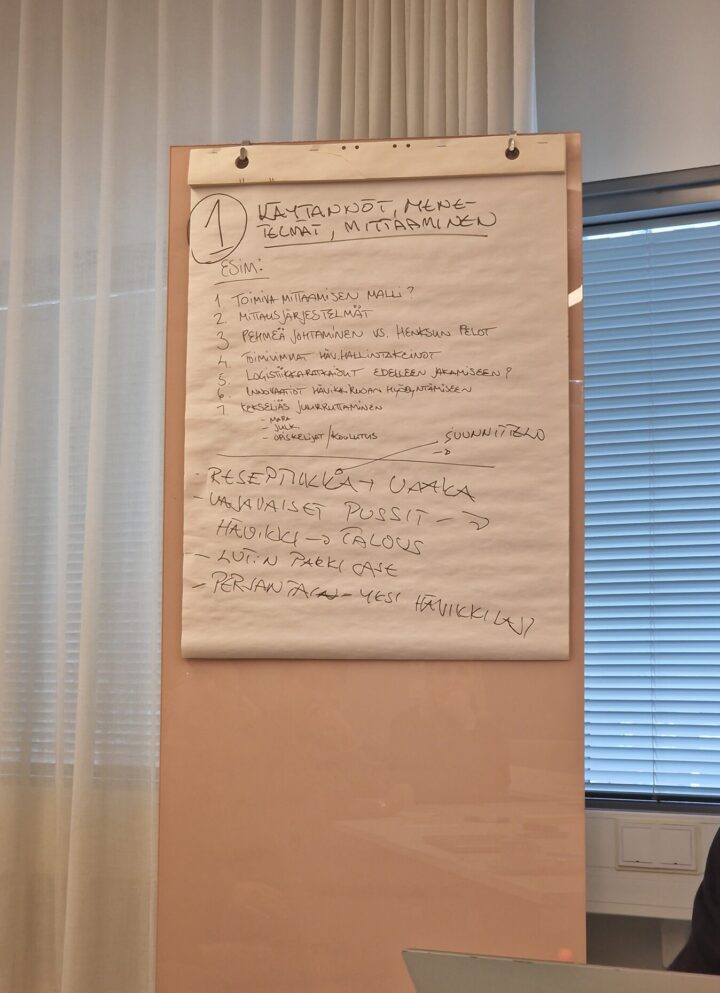 1 KÄYTÄNNÖT, MENE-
TELMÄT, MITTAAMINEN
ESIM:
1. TOIMIVA MITTAAMISEN MALLI?
2. MITTAUSJÄRJESTELMÄT
3 PEHMEÄ JOHTAMINEN VS. HENKSUN PELOT
4. TOIMIVIMMAT HÄV.HALLINTAKEINOT
5. LOGISTIIKKARATKAISUT EDELLEEN JAKAMISEEN?
6. INNOVAATIOT HÄVIKKIRUOAN HYÖDYNTÄMISEEN
7 KEKSELIÄS JUURRUTTAMINEN
- MARA
- JULK.
- OPISKELIJAT/KOULUTUS
SUUNNITTELU
- RESEPTIIKKA → VAAKA
- VAJAVAISET PUSSIT →
HÄVIKKI → TALOUS
- CASE
- PERJANTAI - YKSI HÄVIKKILAJI